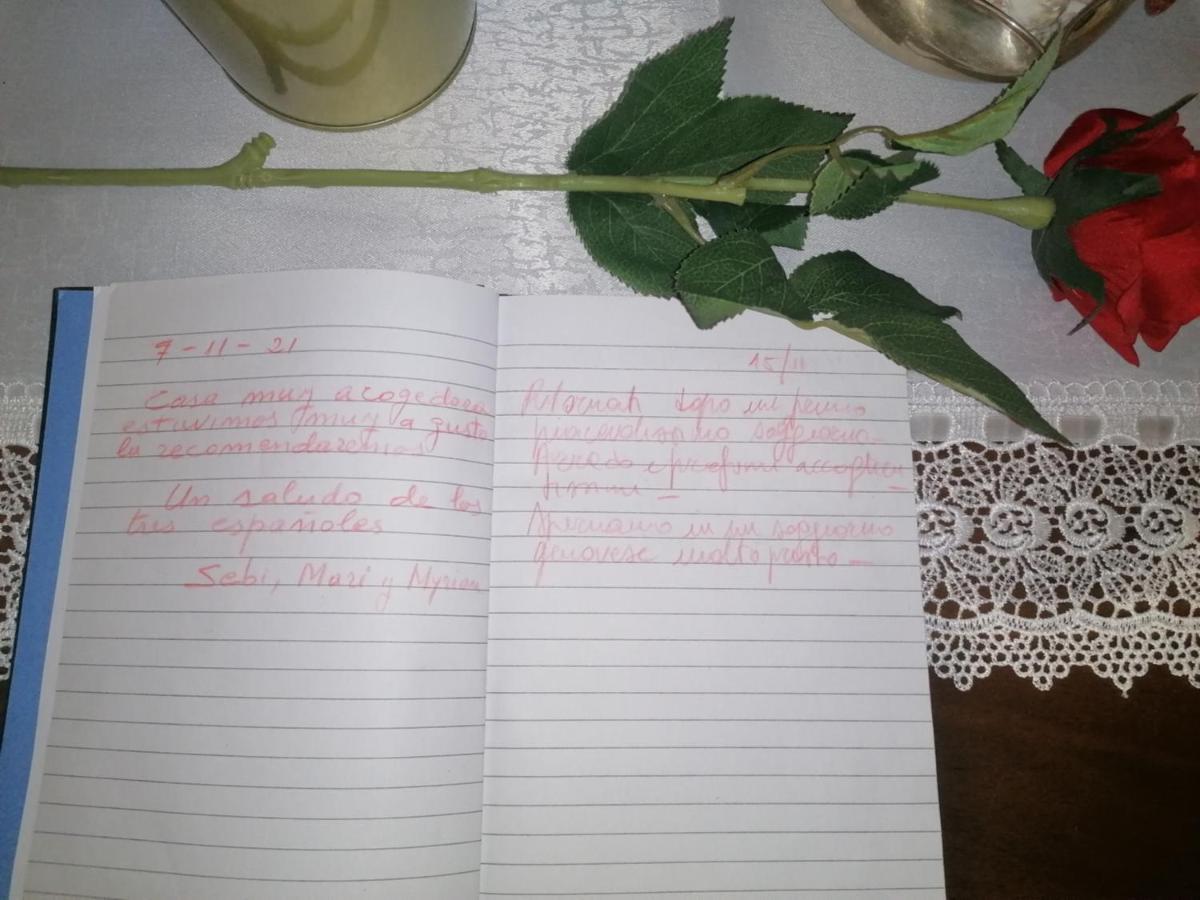 7-11-21
Casa muy acogedora
estuvimos muy a gusto
la recomendaremos
Un saludo de los
tres españoles
Sebi, Mari y Myriam
15/11
dopo un primo
piacevolissimo soggiorno
Arredo e profumi
Speriamo in un soggiorno
genovese molto presto